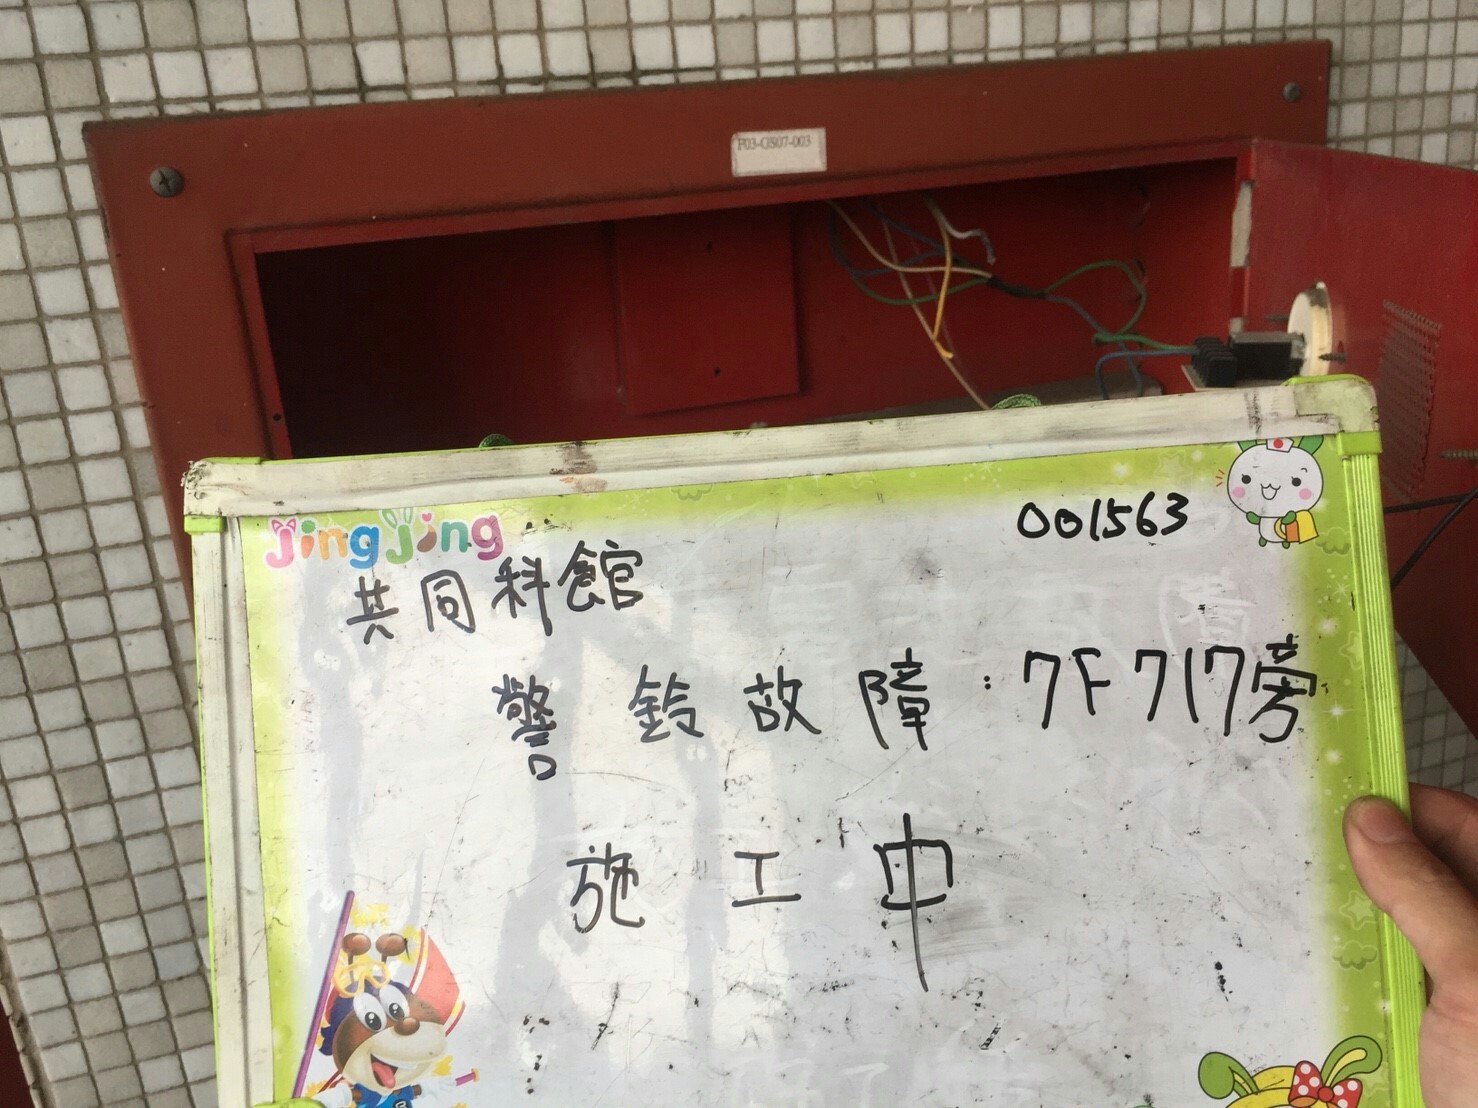 F03-GS07-003
jingjing
001563
共同科館
警鈴故障:7F 717旁
施工中